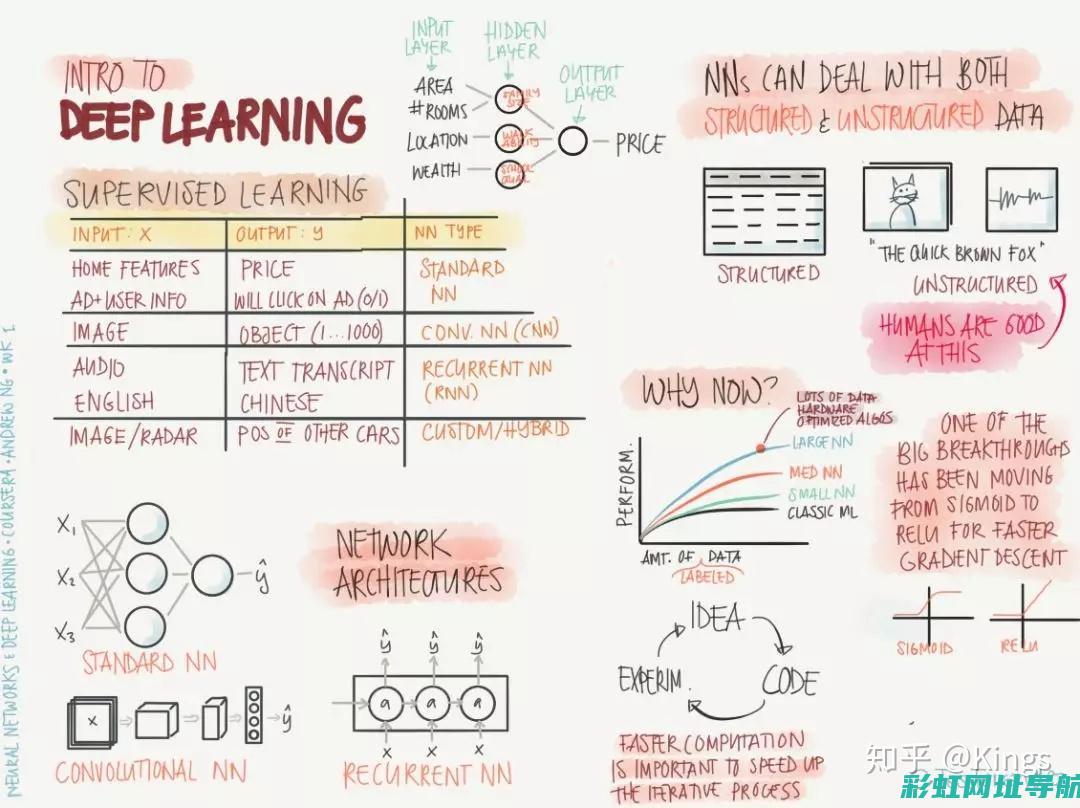 INTRO TO
DEEP LEARNING
INPUT LAYER
HIDDEN LAYER
OUTPUT LAYER
AREA
#ROOMS
LOCATION
WEALTH
FAMILY SIZE
WALK ABILITY
SCHOOL QUAL
PRICE
SUPERVISED LEARNING
INPUT: X OUTPUT: y NN TYPE
HOME FEATURES PRICE STANDARD
AD+USER INFO WILL CLICK ON AD (0/1) NN
IMAGE OBJECT (1...1000) CONV. NN (CNN)
AUDIO TEXT TRANSCRIPT RECURRENT NN
ENGLISH CHINESE (RNN)
IMAGE/RADAR POS OF OTHER CARS CUSTOM/HYBRID
NNs CAN DEAL WITH BOTH
STRUCTURED & UNSTRUCTURED DATA
STRUCTURED
"THE QUICK BROWN FOX"
UNSTRUCTURED
HUMANS ARE GOOD
AT THIS
WHY NOW?
LOTS OF DATA
HARDWARE
OPTIMIZED ALGOS
LARGE NN
MED NN
SMALL NN
CLASSIC ML
PERFORM.
AMT. OF DATA
LABELED
ONE OF THE
BIG BREAKTHROUGHS
HAS BEEN MOVING
FROM SIGMOID TO
RELU FOR FASTER
GRADIENT DESCENT
SIGMOID
RELU
X1
X2
X3
ŷ
STANDARD NN
NETWORK
ARCHITECTURES
x
ŷ
CONVOLUTIONAL NN
ŷ ŷ ŷ
a a a
x x x
RECURRENT NN
IDEA
EXPERIM.
CODE
FASTER COMPUTATION
IS IMPORTANT TO SPEED UP
THE ITERATIVE PROCESS
NEURAL NETWORKS & DEEP LEARNING · COURSERA · ANDREW NG · WK 1
知乎 @Kings
彩虹网址导航